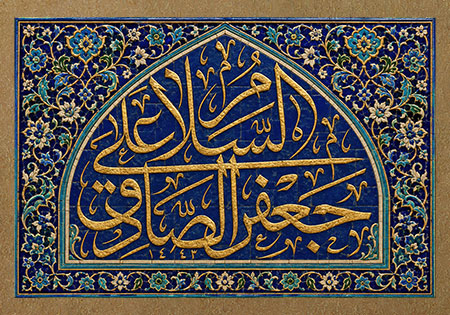 السَّلامُ عَلى
جَعْفَرِ الصَّادِق
١٤٤٢